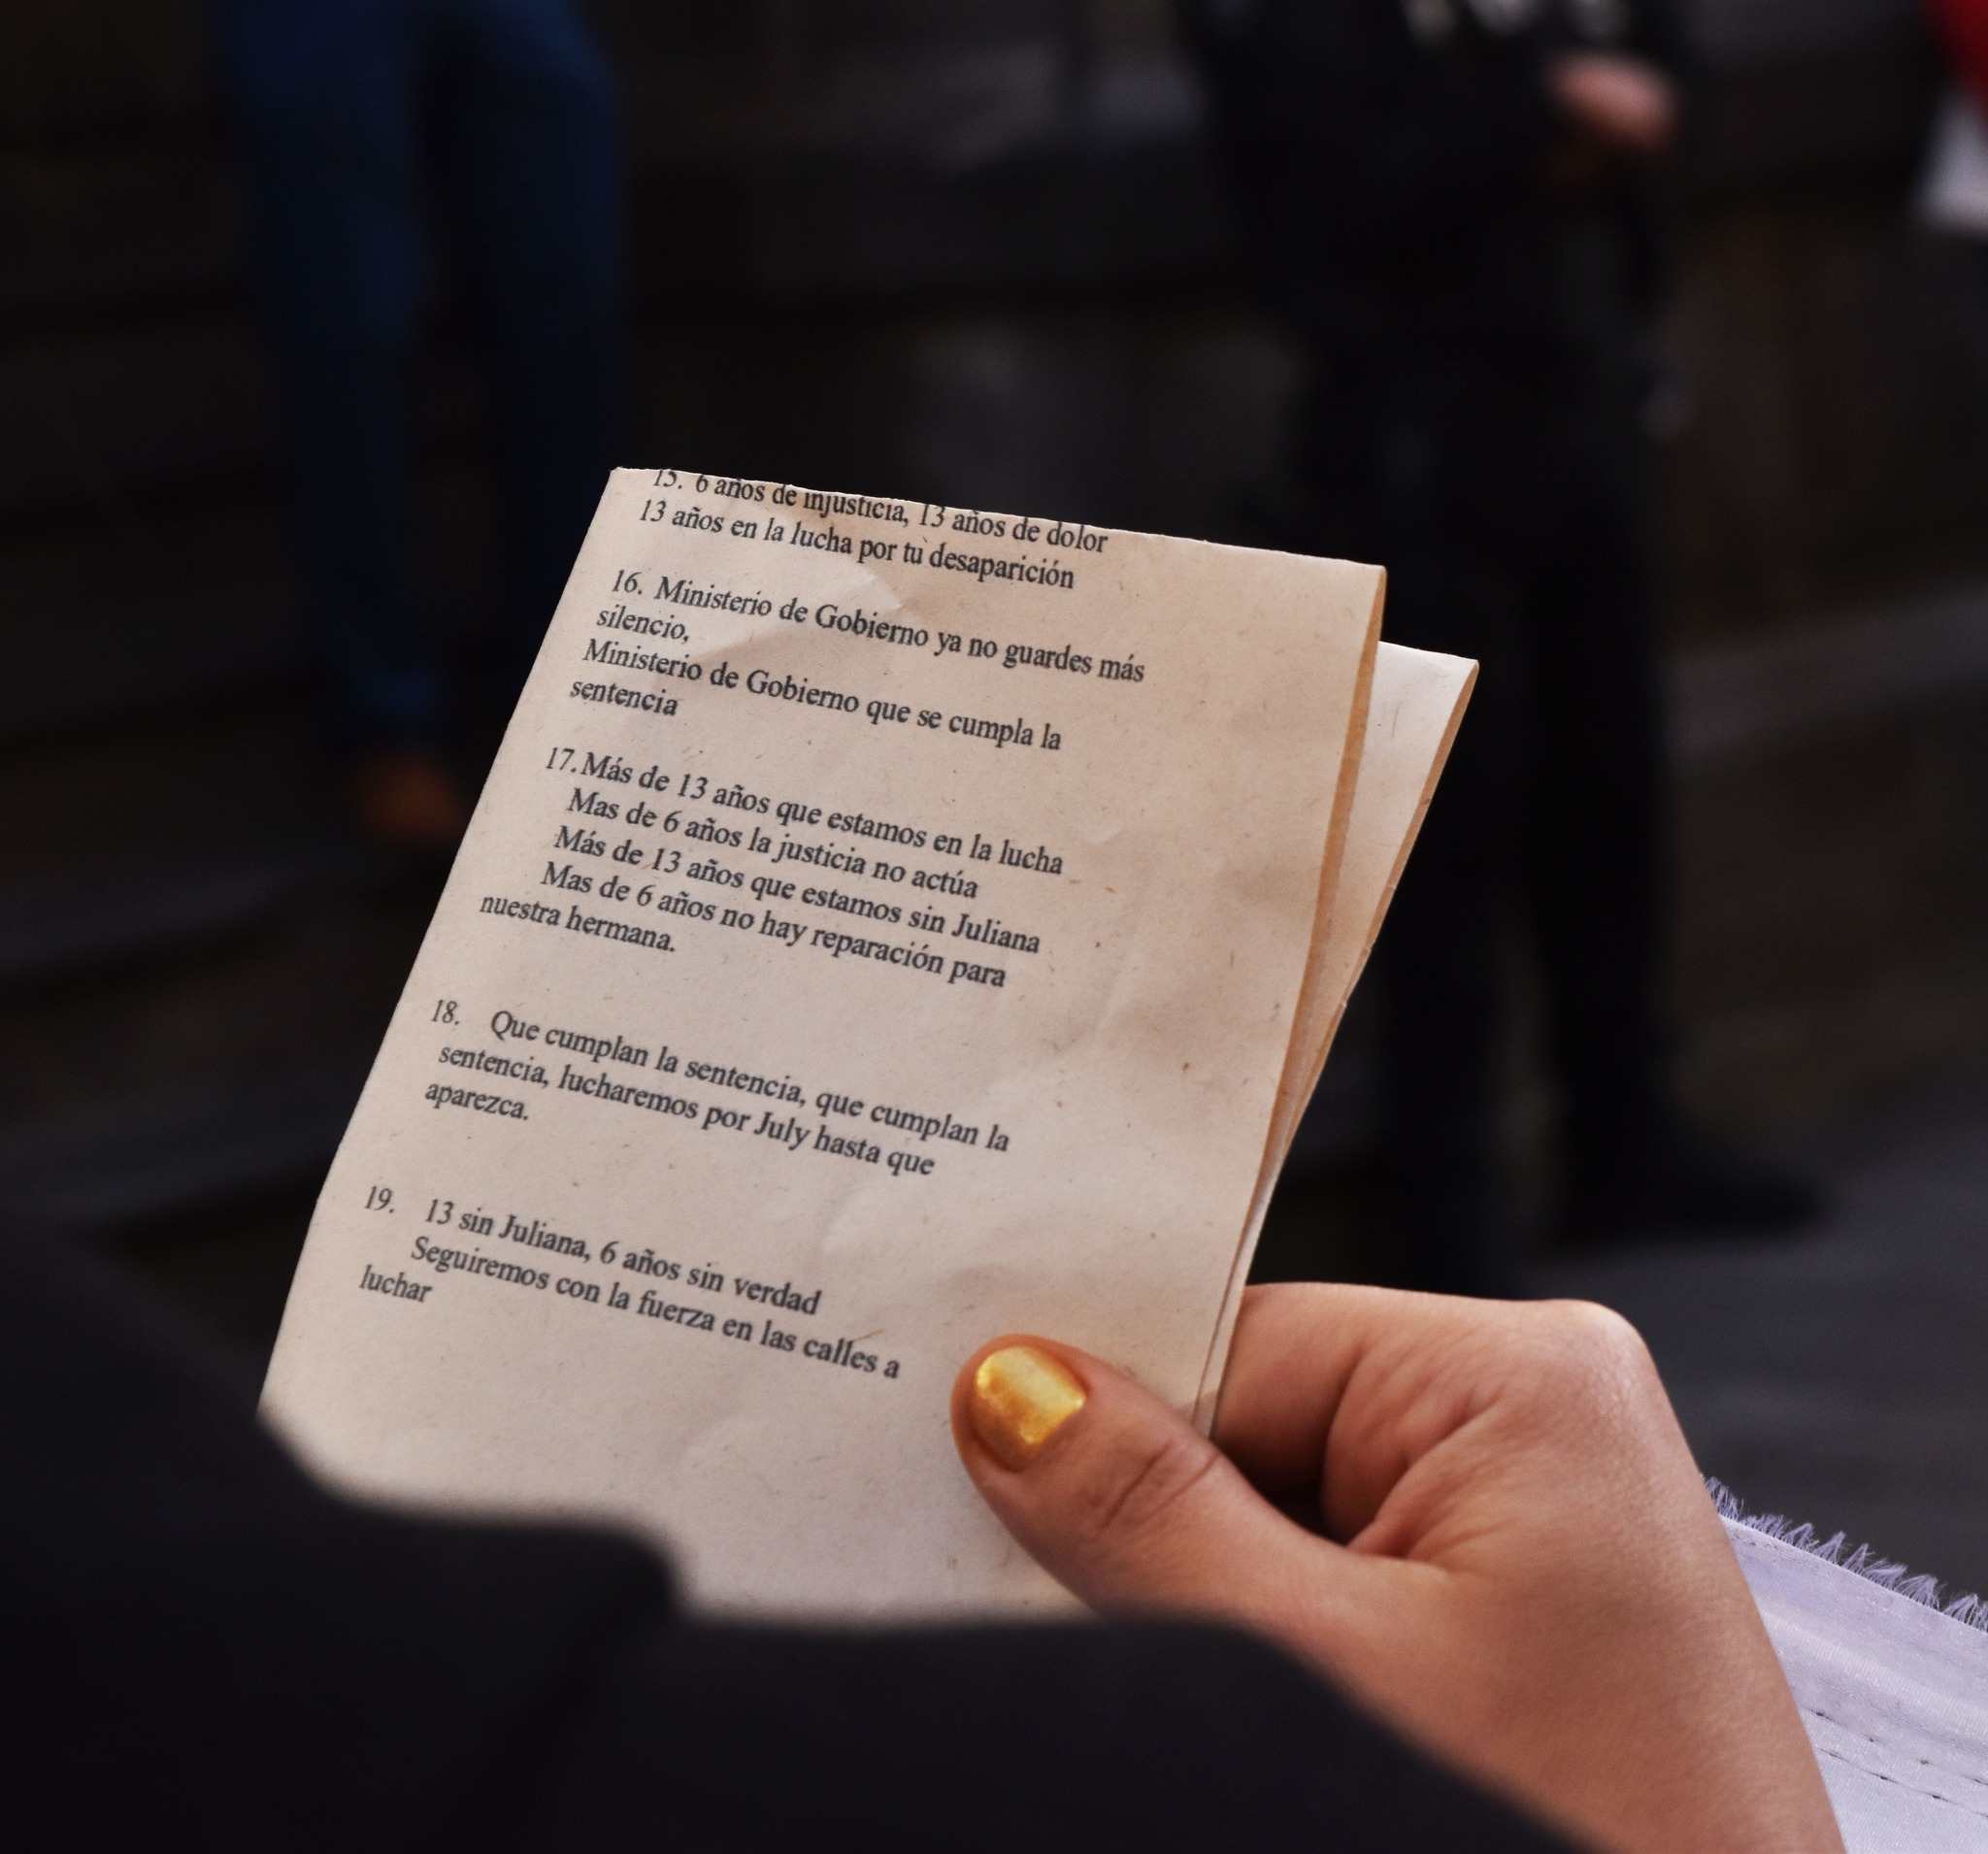 15. 6 años de injusticia, 13 años de dolor
13 años en la lucha por tu desaparición
16. Ministerio de Gobierno ya no guardes más
silencio,
Ministerio de Gobierno que se cumpla la
sentencia
17. Más de 13 años que estamos en la lucha
Mas de 6 años la justicia no actúa
Más de 13 años que estamos sin Juliana
Mas de 6 años no hay reparación para
nuestra hermana.
18. Que cumplan la sentencia, que cumplan la
sentencia, lucharemos por July hasta que
aparezca.
19. 13 sin Juliana, 6 años sin verdad
Seguiremos con la fuerza en las calles a
luchar